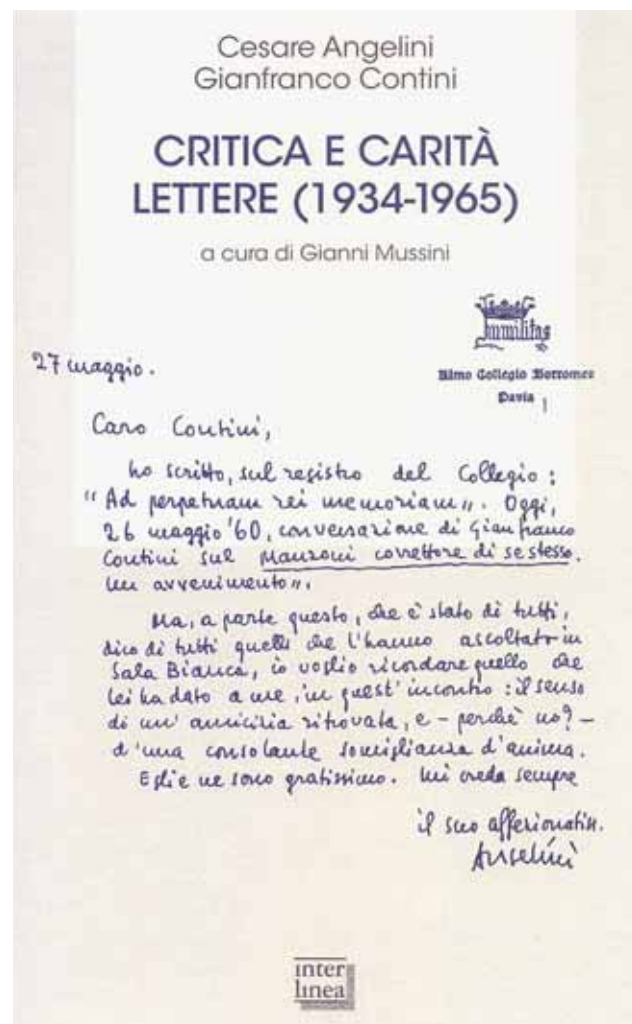 Cesare Angelini
Gianfranco Contini
CRITICA E CARITÀ
LETTERE (1934-1965)
a cura di Gianni Mussini
Humilitas
Almo Collegio Borromeo
Pavia
27 maggio.
Caro Contini,
ho scritto, sul registro del Collegio:
"Ad perpetuam rei memoriam". Oggi,
26 maggio '60, conversazione di Gianfranco
Contini sul Manzoni correttore di se stesso.
Un avvenimento".
Ma, a parte questo, che è stato di tutti,
dico di tutti quelli che l'hanno ascoltato in
Sala Bianca, io voglio ricordare quello che
lei ha dato a me, in quest'incontro: il senso
di un'amicizia ritrovata, e - perchè no? -
d'una consolante somiglianza d'anima.
E glie ne sono gratissimo. Mi creda sempre
il suo affezionatiss.
Angelini
inter
linea